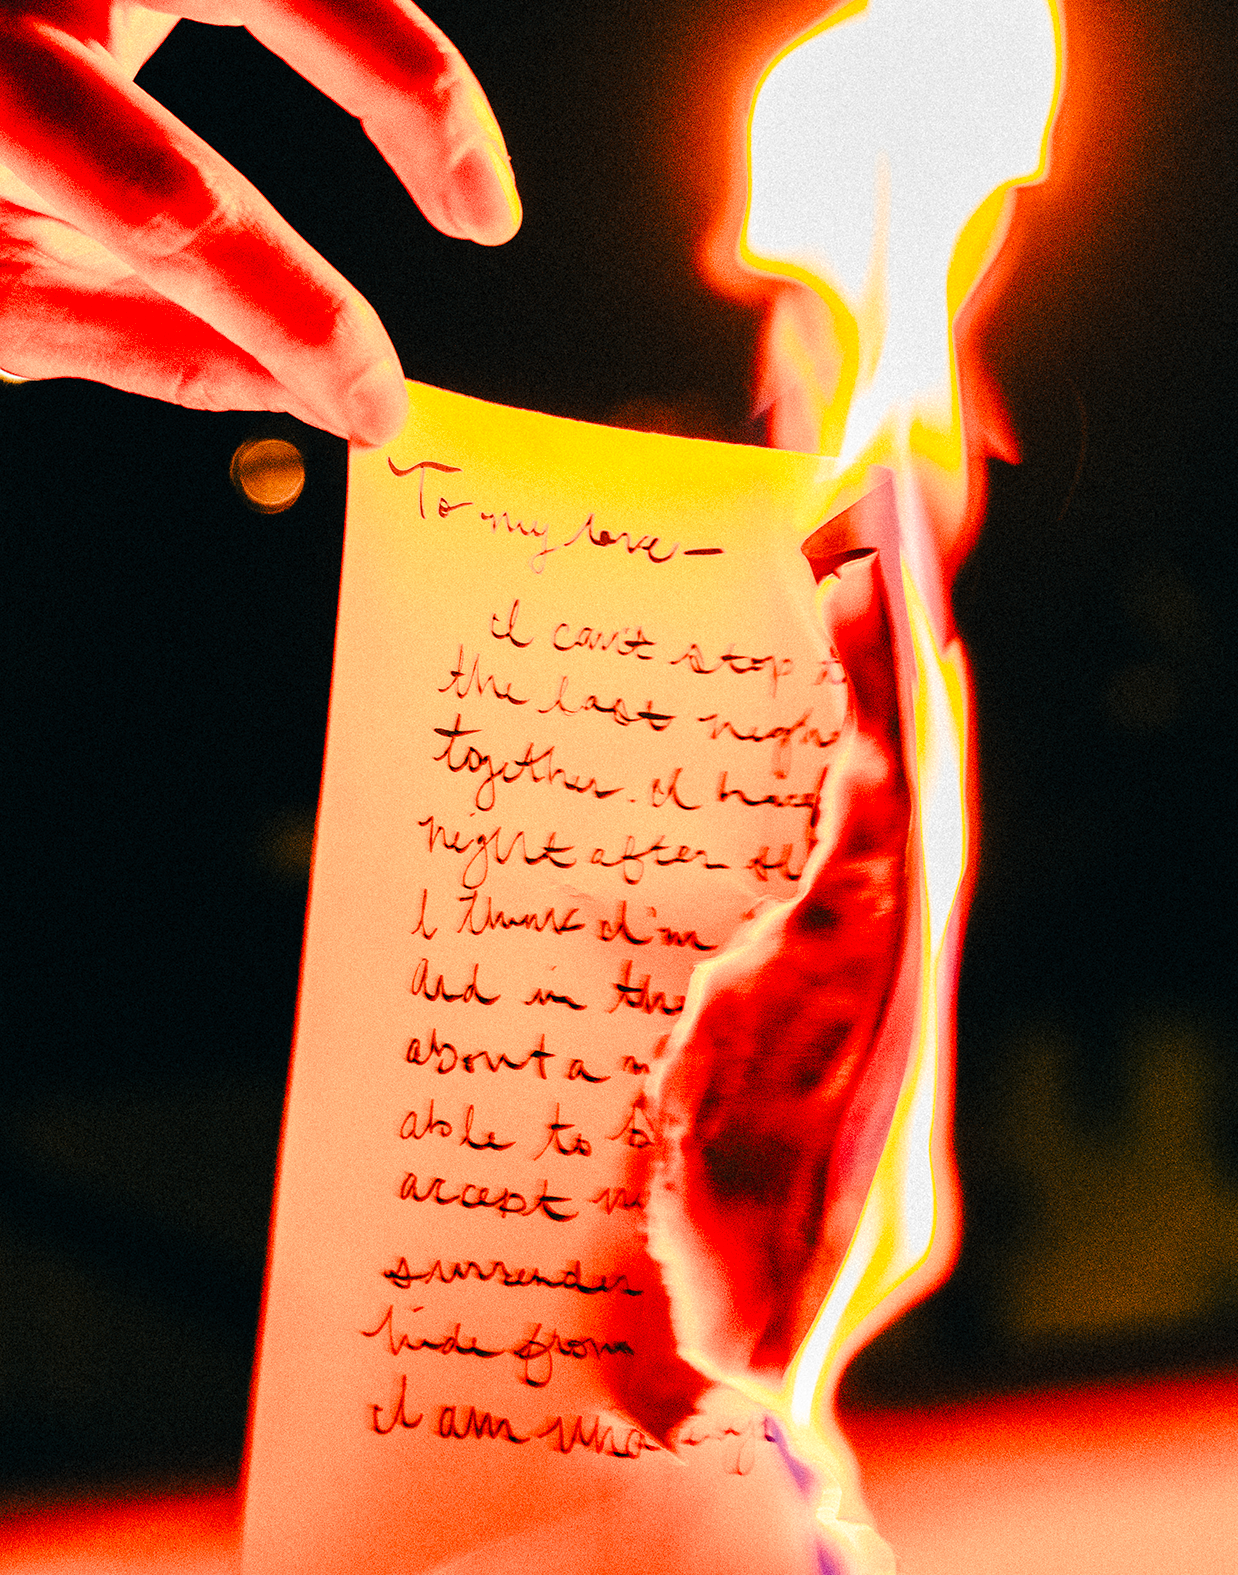 To my love—
I can't stop t
the last nigh
together. I hav
night after
I think I'm
and in the
about a
able to
accept
surrender
hide from
I am